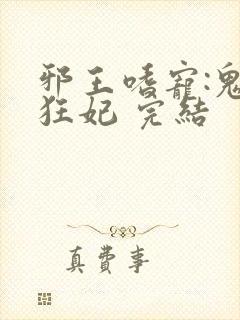 邪王嗜寵:鬼
狂妃 完結
真費事